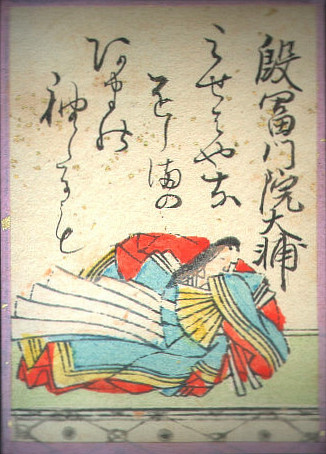 殷冨門院大輔
みせはやな
をしまの
あまの
袖たにも